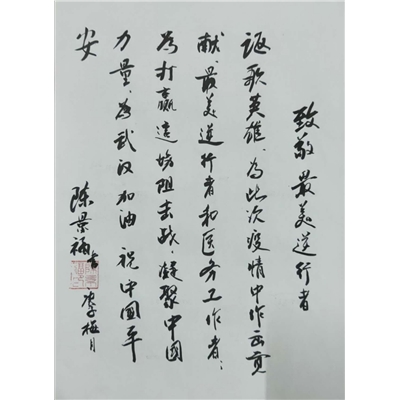 致敬最美逆行者
讴歌英雄、为此次疫情中作出贡
献、最美逆行者和医务工作者；
为打赢这场阻击战，凝聚中国
力量，为武汉加油 祝中国平
安
陈景福 梅月